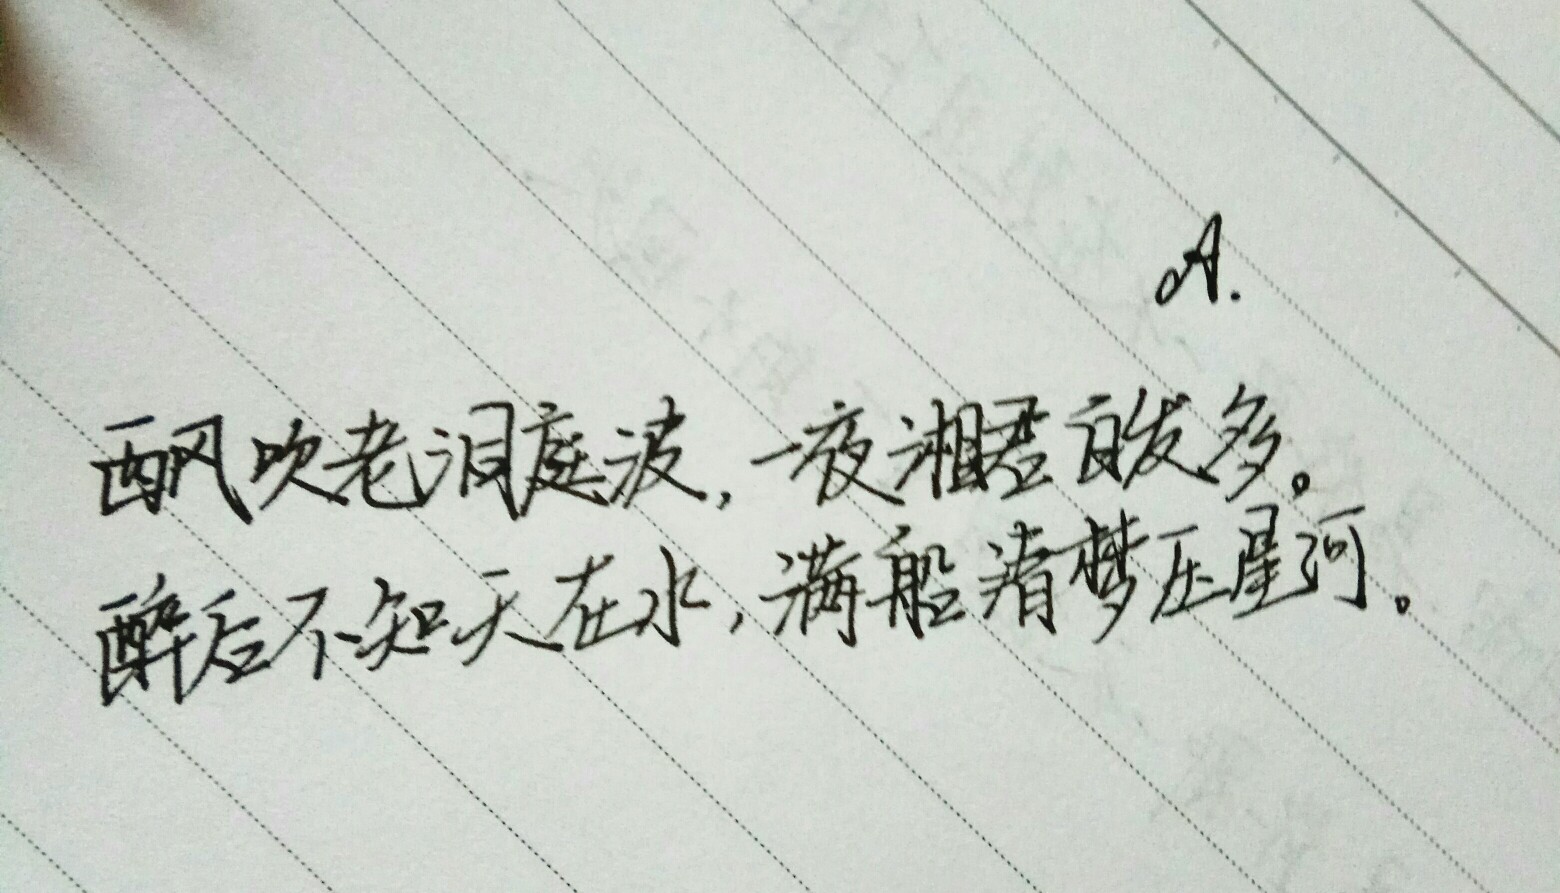 A.
西风吹老洞庭波，一夜湘君白发多。
醉后不知天在水，满船清梦压星河。